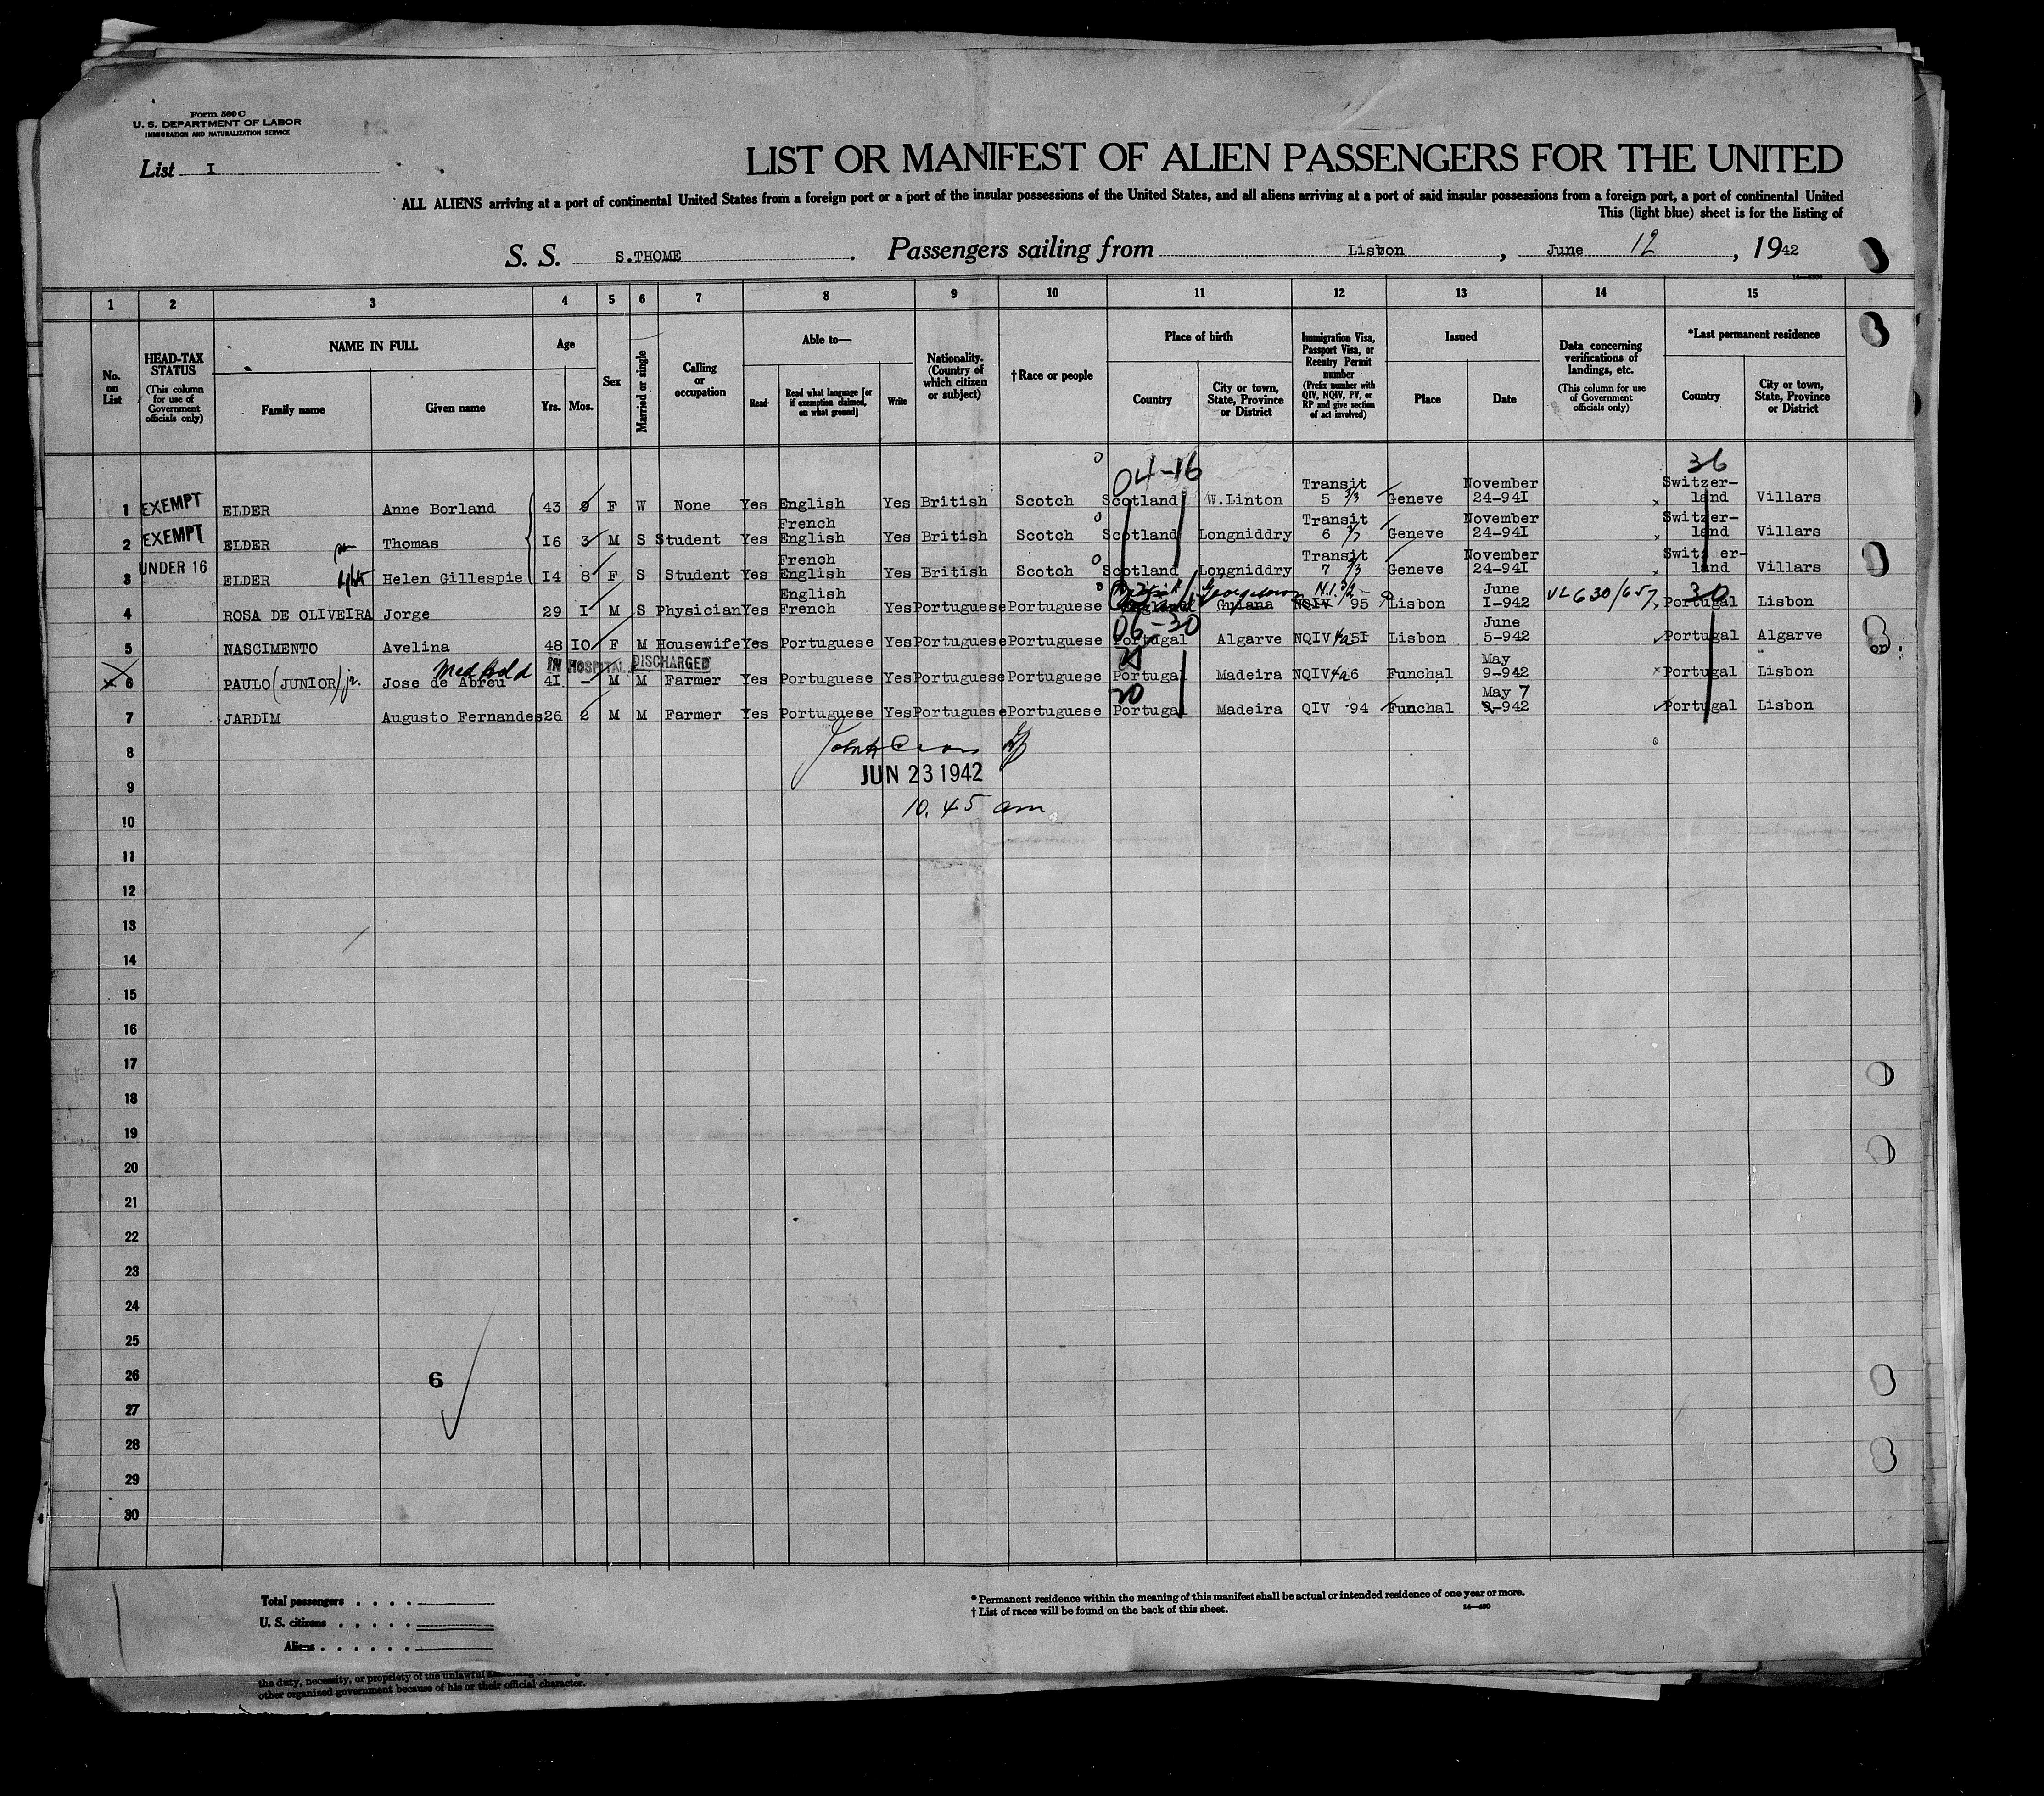 Form 500 C
U. S. DEPARTMENT OF LABOR
IMMIGRATION AND NATURALIZATION SERVICE
List I
LIST OR MANIFEST OF ALIEN PASSENGERS FOR THE UNITED
ALL ALIENS arriving at a port of continental United States from a foreign port or a port of the insular possessions of the United States, and all aliens arriving at a port of said insular possessions from a foreign port, a port of continental United
This (light blue) sheet is for the listing of
S. S. S.THOME . Passengers sailing from Lisbon , June 12 , 1942
1 2 3 4 5 6 7 8 9 10 11 12 13 14 15
No. on List
HEAD-TAX STATUS (This column for use of Government officials only)
NAME IN FULL
Family name
Given name
Age
Yrs. Mos.
Sex
Married or single
Calling or occupation
Able to—
Read
Read what language [or if exemption claimed, on what ground]
Write
Nationality. (Country of which citizen or subject)
†Race or people
Place of birth
Country
City or town, State, Province or District
Immigration Visa, Passport Visa, or Reentry Permit number (Prefix number with QIV, NQIV, PV, or RP and give section of act involved)
Issued
Place
Date
Data concerning verifications of landings, etc. (This column for use of Government officials only)
*Last permanent residence
Country
City or town, State, Province or District
04-16 36
1 EXEMPT ELDER Anne Borland 43 9 F W None Yes English Yes British Scotch Scotland W.Linton Transit 5 3/3 Geneve November 24-94I Switzer-land Villars
2 EXEMPT ELDER Thomas I6 3 M S Student Yes French English Yes British Scotch Scotland Longniddry Transit 6 Geneve November 24-94I Switzer-land Villars
3 UNDER 16 ELDER Helen Gillespie I4 8 F S Student Yes French English Yes British Scotch Scotland Longniddry Transit 7 3/3 Geneve November 24-94I Switz er-land Villars
4 ROSA DE OLIVEIRA Jorge 29 I M S Physician Yes English French Yes Portuguese Portuguese British Georgetown Guiana NQIV 95 Lisbon June I-942 VL630/657 30 Portugal Lisbon
06-30
5 NASCIMENTO Avelina 48 IO F M Housewife Yes Portuguese Yes Portuguese Portuguese Portugal Algarve NQIV 5I Lisbon June 5-942 Portugal Algarve
Med hold IN HOSPITAL DISCHARGED
6 PAULO (JUNIOR) jr. Jose de Abreu 4I - M M Farmer Yes Portuguese Yes Portuguese Portuguese Portugal Madeira NQIV 6 Funchal May 9-942 Portugal Lisbon
30
7 JARDIM Augusto Fernandes 26 2 M M Farmer Yes Portuguese Yes Portuguese Portuguese Portugal Madeira QIV 94 Funchal May 7 9-942 Portugal Lisbon
8
JUN 23 1942
9
10.45 am
10
11
12
13
14
15
16
17
18
19
20
21
22
23
24
25
26
6
27
28
29
30
Total passengers . . . .
U. S. citizens . . . . .
Aliens . . . . . .
* Permanent residence within the meaning of this manifest shall be actual or intended residence of one year or more.
† List of races will be found on the back of this sheet.
14—430
the duty, necessity, or propriety of the unlawful
other organized government because of his or their official character.